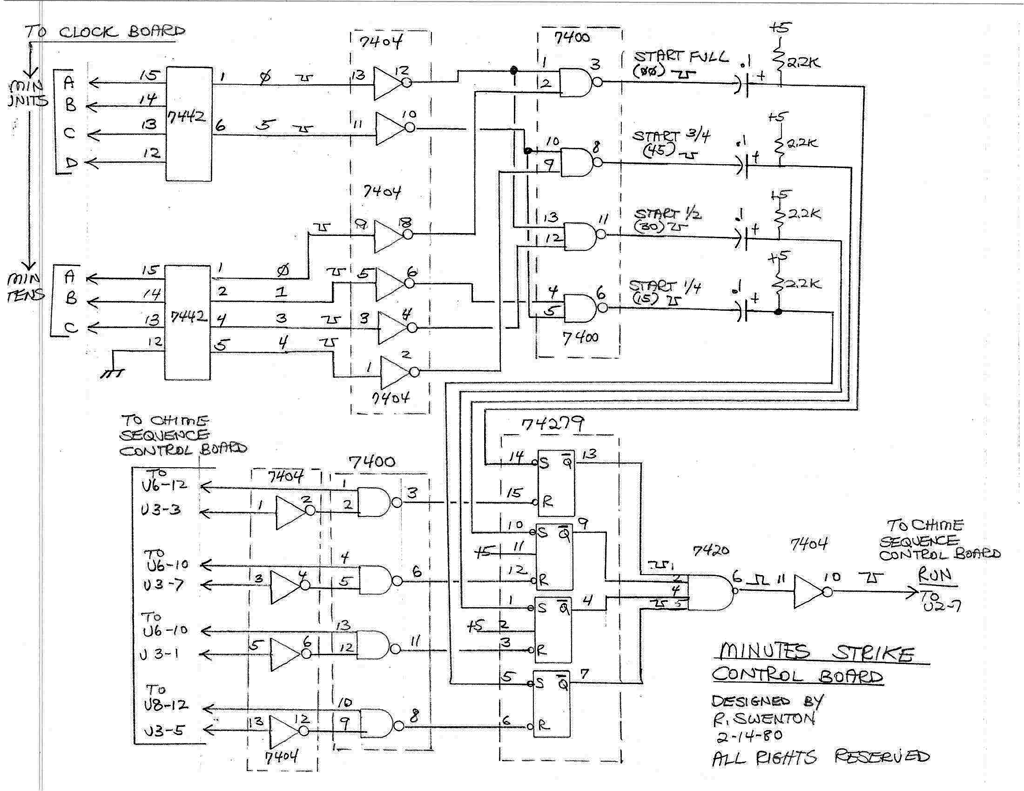 TO CLOCK BOARD
MIN UNITS
A
B
C
D
15
14
13
12
7442
1 0
6 5
7404
13 12
11 10
7404
9 8
5 6
3 4
1 2
7404
MIN TENS
A
B
C
15
14
13
12
7442
1 0
2 1
4 3
5 4
7400
1
2
3
10
9
8
13
12
11
4
5
6
7400
START FULL
(00)
START 3/4
(45)
START 1/2
(30)
START 1/4
(15)
.1 +
+5
2.2K
.1 +
+5
2.2K
.1 +
+5
2.2K
.1 +
+5
2.2K
TO CHIME
SEQUENCE
CONTROL BOARD
TO
U6-12
U3-3
TO
U6-10
U3-7
TO
U6-10
U3-1
TO
U8-12
U3-5
7404
1 2
3 4
5 6
13 12
7404
7400
1
2
3
4
5
6
13
12
11
10
9
8
74279
14 S Q 13
15 R
10 S Q 9
+5 11
12 R
1 S Q 4
+5 2
3 R
5 S Q 7
6 R
7420
1
2
4
5
6
7404
11 10
TO CHIME
SEQUENCE
CONTROL BOARD
RUN
TO
U2-7
MINUTES STRIKE
CONTROL BOARD
DESIGNED BY
R. SWENTON
2-14-80
ALL RIGHTS RESERVED